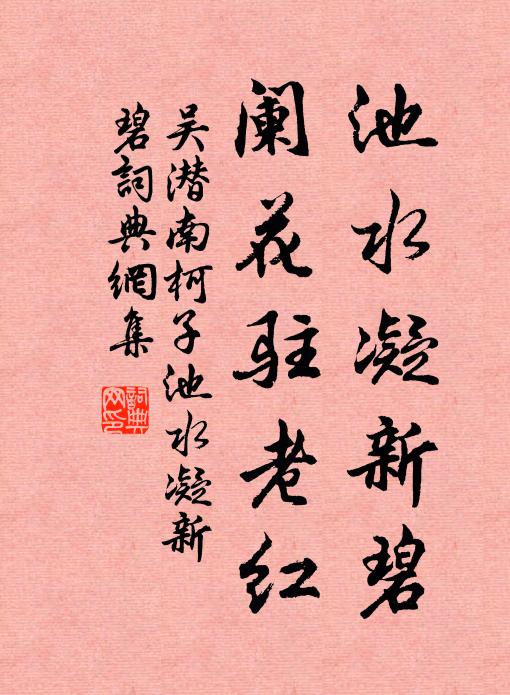 池水凝新碧
阑花驻老红
吴潜南柯子池水凝新
碧词典網集
词典
网印